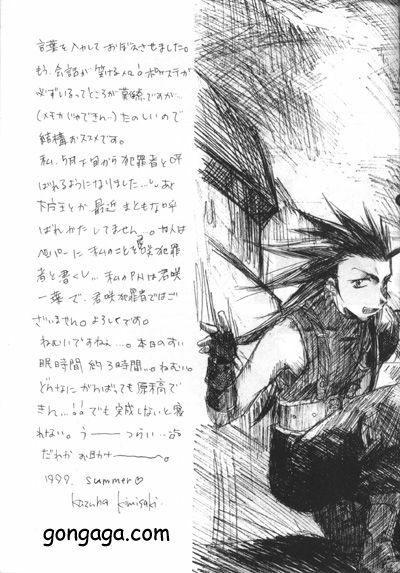 言葉を入力しておぼえさせました。
もう、会話が笑けるんる!ポケステが
必ずいるってところが難ですが…
(メモカじゃできん…) たのしいので
結構おススメです。
私、5月下旬から犯罪者と呼
ばれるようになりました…。あと
最近まともな呼
ばれかたしてません。友人は
ペーパーに私のことを君咲犯罪
者と書くし…私のP.Nは君咲
一葉で、君咲犯罪者ではご
ざいません。よろしくです。
ねむいですねえ…。本日のすい
眠時間 約3時間…。ねむい。
どんなにがんばっても原稿で
きん…!でも完成しないと寝
れない。うーーーつらい…
だれかお助けーーー。
1999. summer♡
Kazuha Kimisaki.
gongaga.com